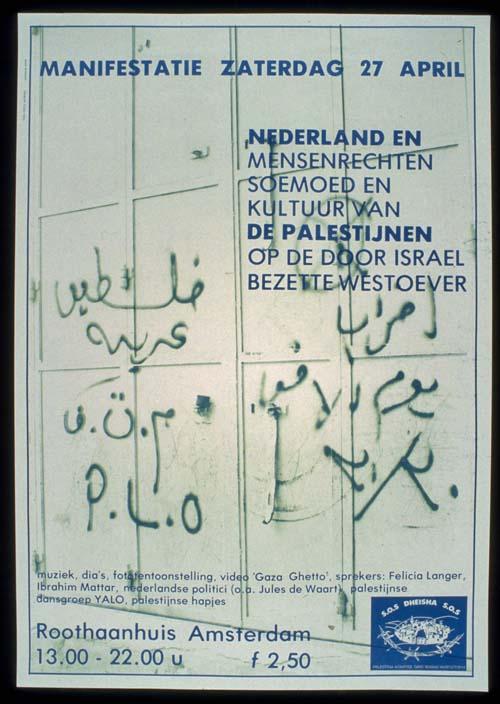 MANIFESTATIE ZATERDAG 27 APRIL
NEDERLAND EN
MENSENRECHTEN
SOEMOED EN
KULTUUR VAN
DE PALESTIJNEN
OP DE DOOR ISRAEL
BEZETTE WESTOEVER
فلسطين
عربية
م.ت.ف
P.L.O
اضراب
يوم
muziek, dia's, fototentoonstelling, video 'Gaza Ghetto', sprekers: Felicia Langer,
Ibrahim Mattar, nederlandse politici (o.a. Jules de Waart), palestijnse
dansgroep YALO, palestijnse hapjes
Roothaanhuis Amsterdam
13.00 - 22.00 u f 2,50
S.O.S DHEISHA S.O.S